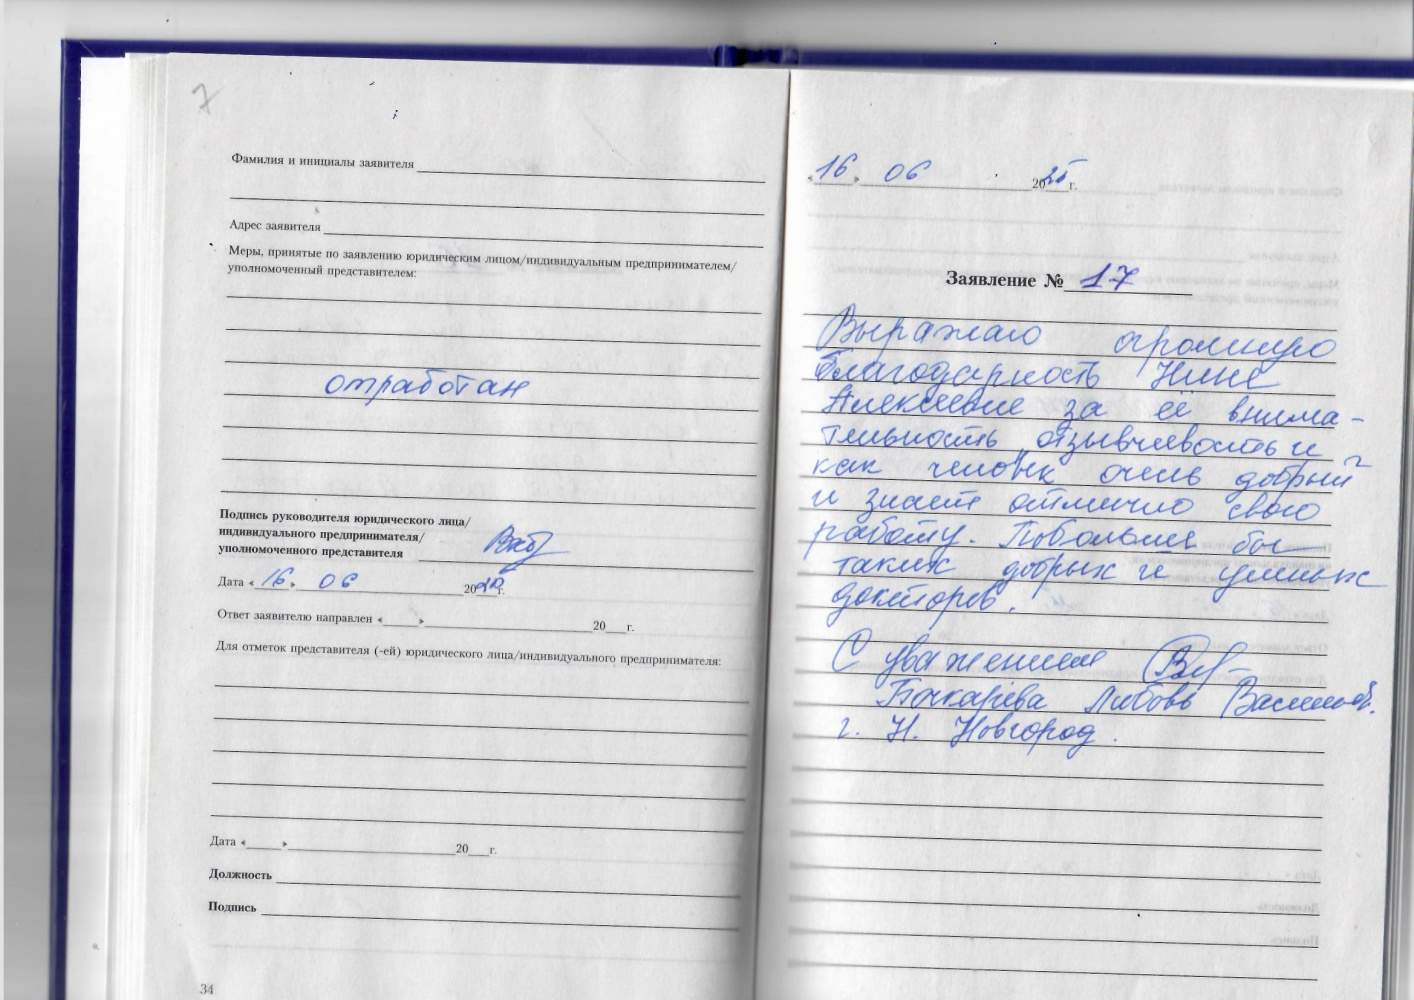 7
Фамилия и инициалы заявителя
Адрес заявителя
Меры, принятые по заявлению юридическим лицом/индивидуальным предпринимателем/
уполномоченный представителем:
отработан
Подпись руководителя юридического лица/
индивидуального предпринимателя/
уполномоченного представителя
Дата «16» 06 20 г.
Ответ заявителю направлен «___»___20___г.
Для отметок представителя (-ей) юридического лица/индивидуального предпринимателя:
Дата «___»___20___г.
Должность
Подпись
34
«16» 06 2025 г.
Заявление № 17
Выражаю огромную
благодарность Нине
Алексеевне за её внима-
тельность, отзывчивость и
как человек очень добрый
и знает отлично свою
работу. Побольше бы
таких добрых и умных
докторов.
С уважением
Бочкарёва Любовь Васильев.
г. Н. Новгород.